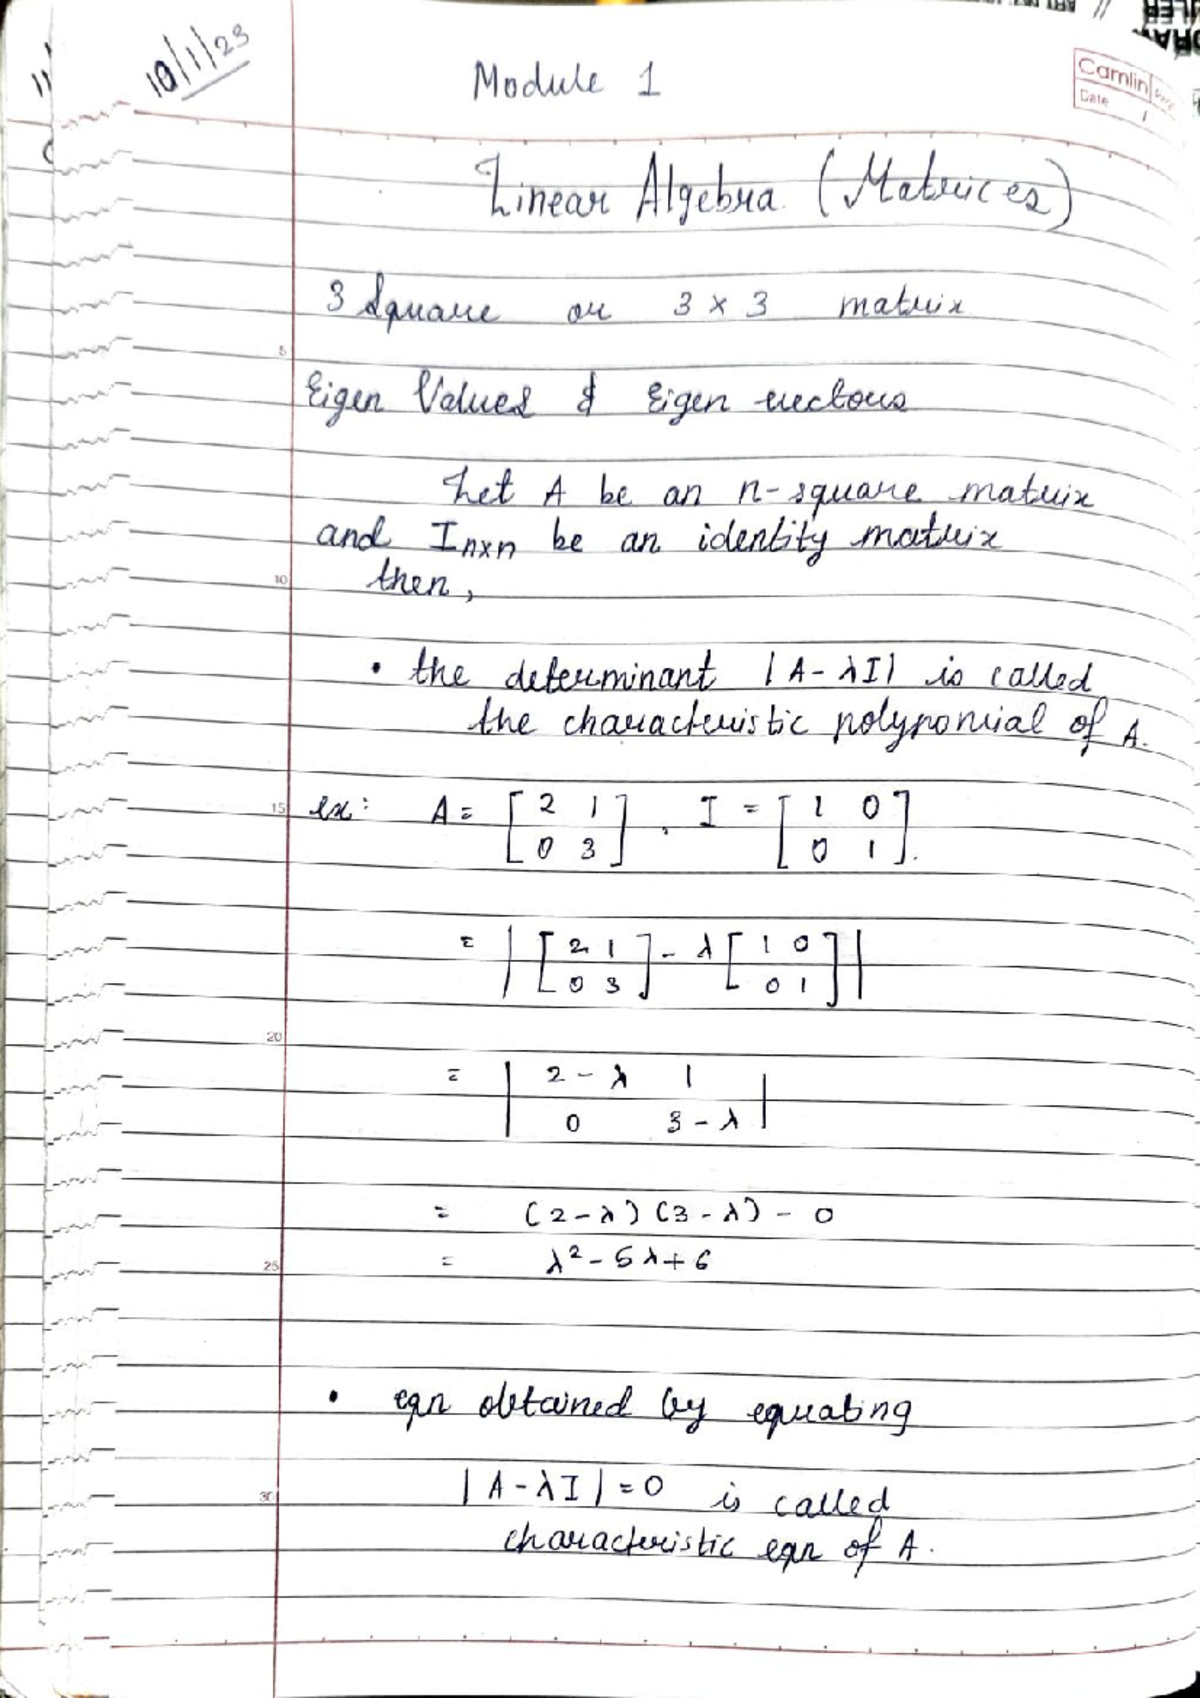 10/1/23
Module 1
Camlin Page
Date /
Linear Algebra (Matrices)
3 Square or 3 × 3 matrix
5
Eigen Values & Eigen vectors
Let A be an n-square matrix
and Inxn be an identity matrix
10
then,
• the determinant |A-λI| is called
the characteristic polynomial of A.
15
ex: A = [2 1 , I = [1 0
0 3] 0 1].
= |[2 1 - λ[1 0
0 3] 0 1]|
20
= |2-λ 1
0 3-λ|
= (2-λ)(3-λ) - 0
25
= λ² - 5λ + 6
• eqn obtained by equating
30
|A-λI| = 0 is called
characteristic eqn of A.